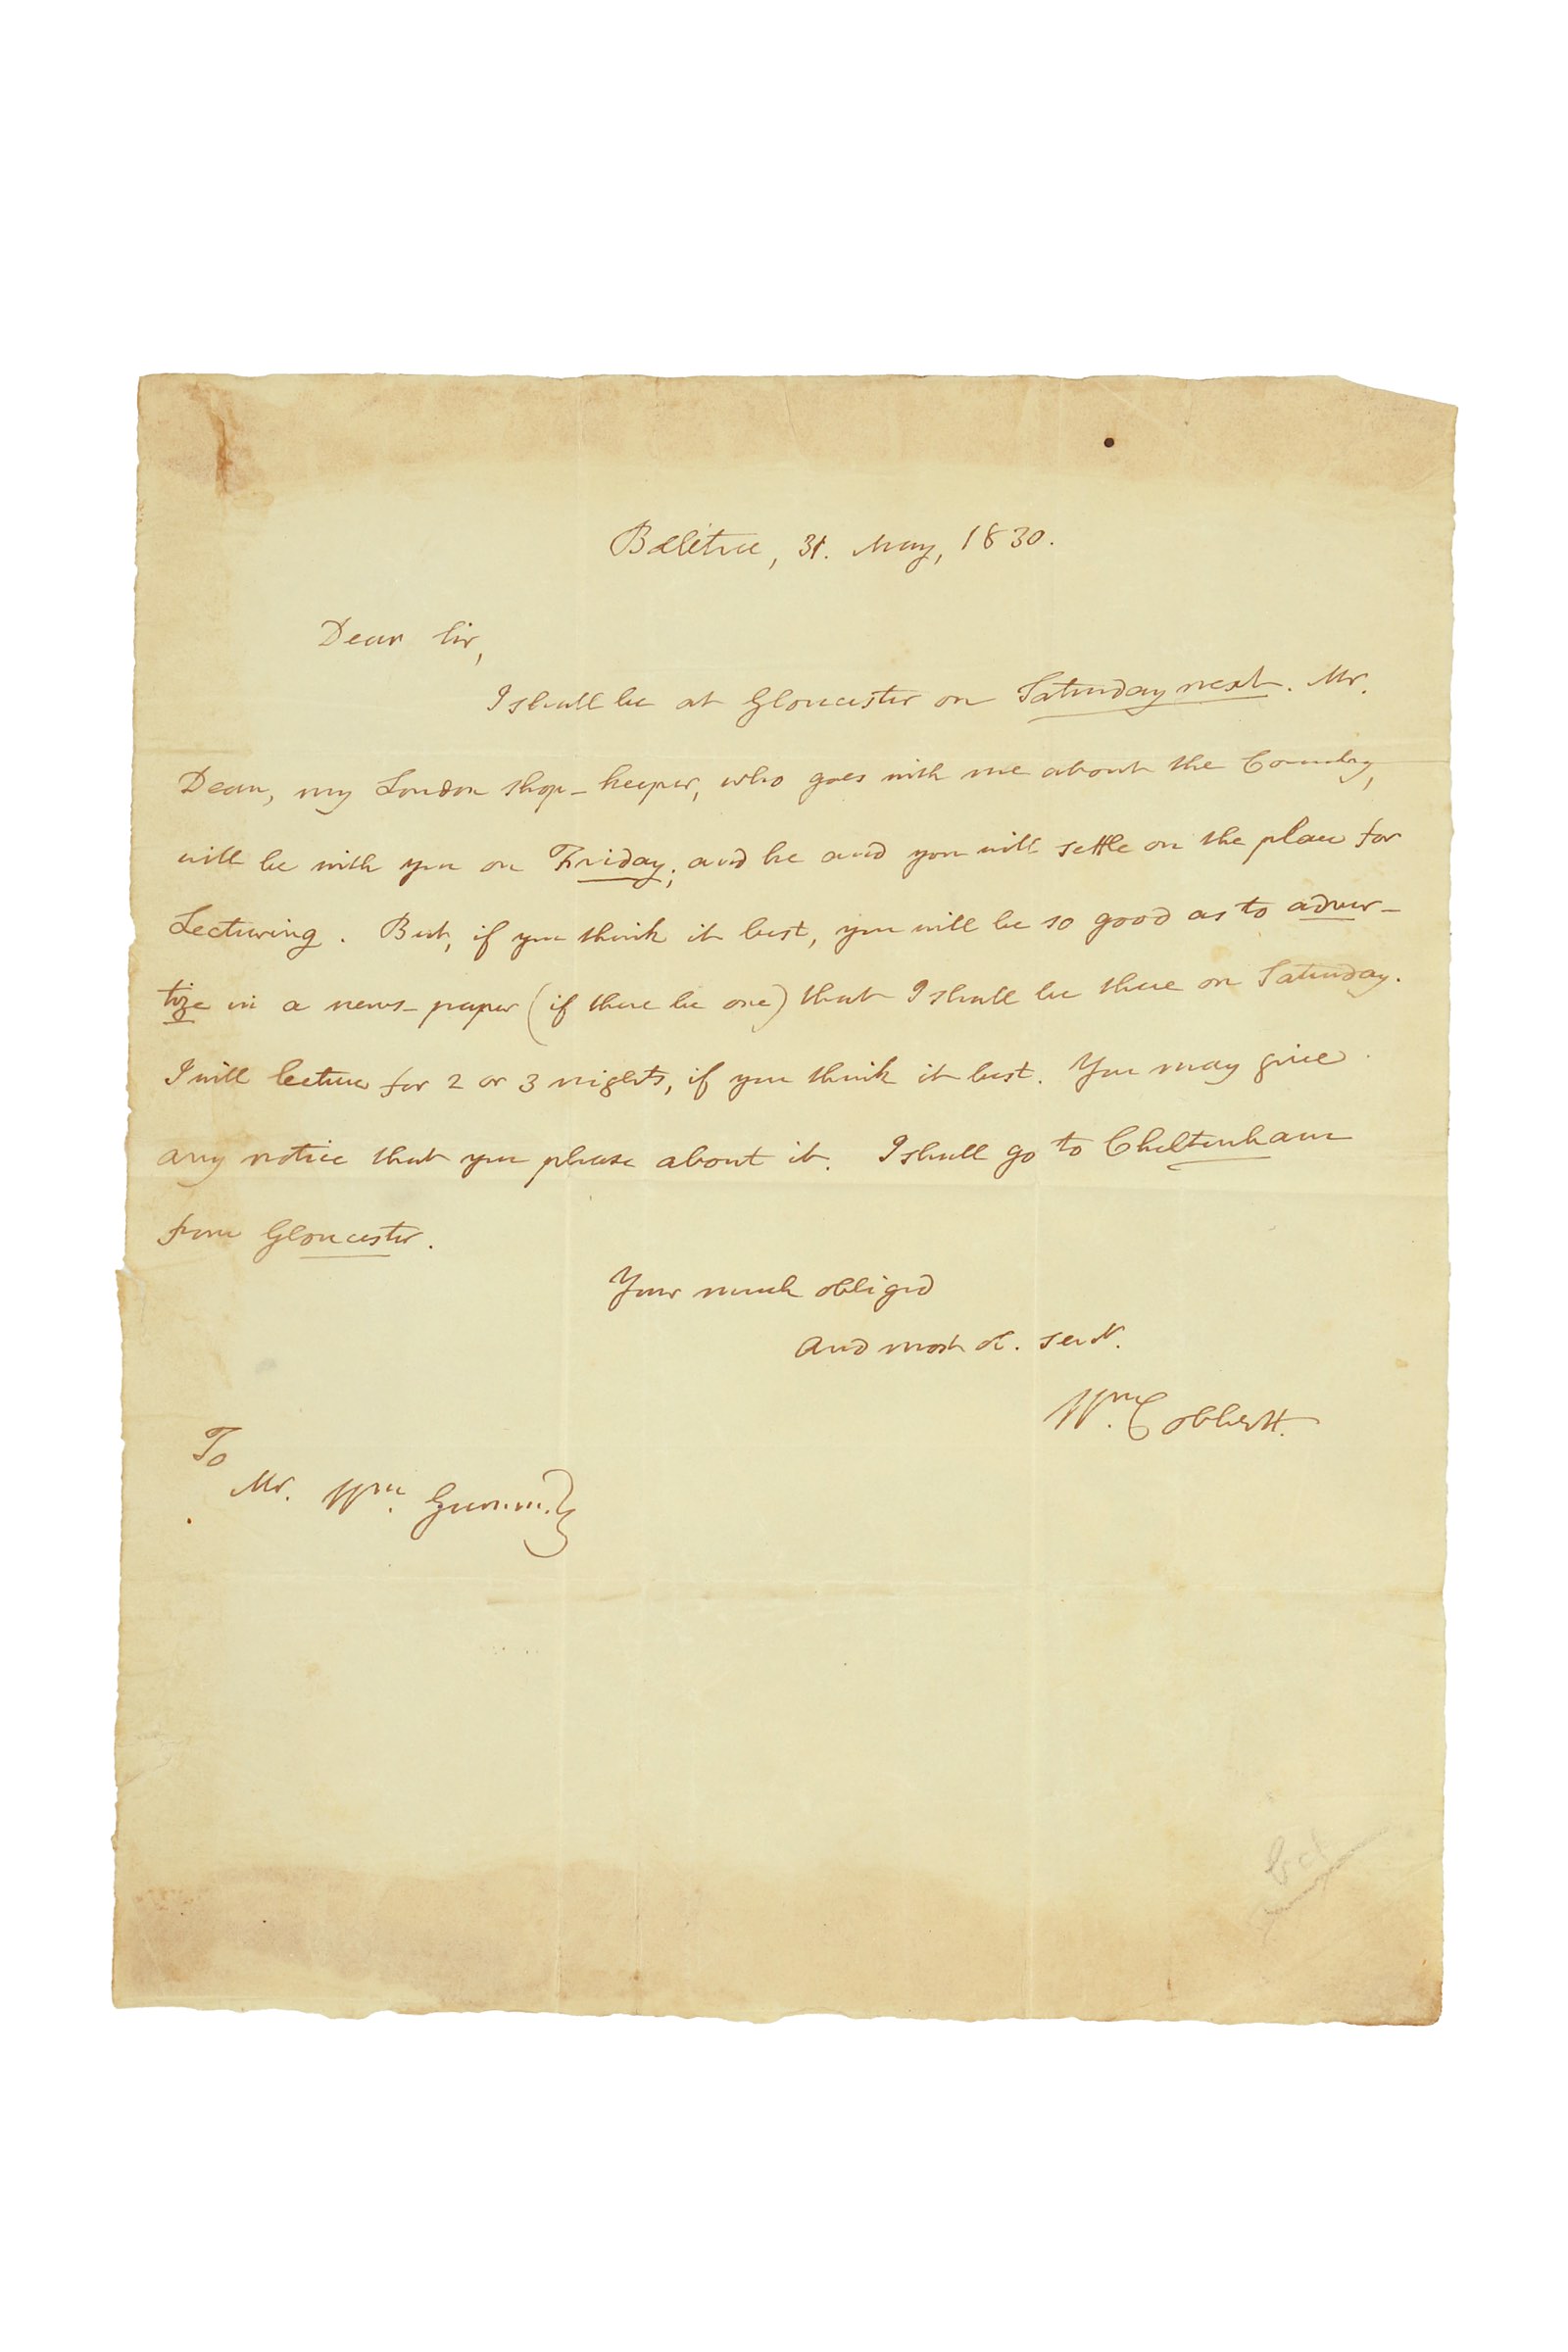 31. May, 1830.
Dear Sir,
I shall be at Gloucester on Saturday next. Mr.
Dean, my London shop-keeper, who goes with me about the Country,
will be with you on Friday; and he and you will settle on the place for
Lecturing. But, if you think it best, you will be so good as to adver-
tize in a news-paper (if there be one) that I shall be there on Saturday.
I will lecture for 2 or 3 nights, if you think it best. You may give
any notice that you please about it. I shall go to Cheltenham
from Gloucester.
Your much obliged
and most ob. servt.
Wm. Cobbett.
To
Mr. Wm.